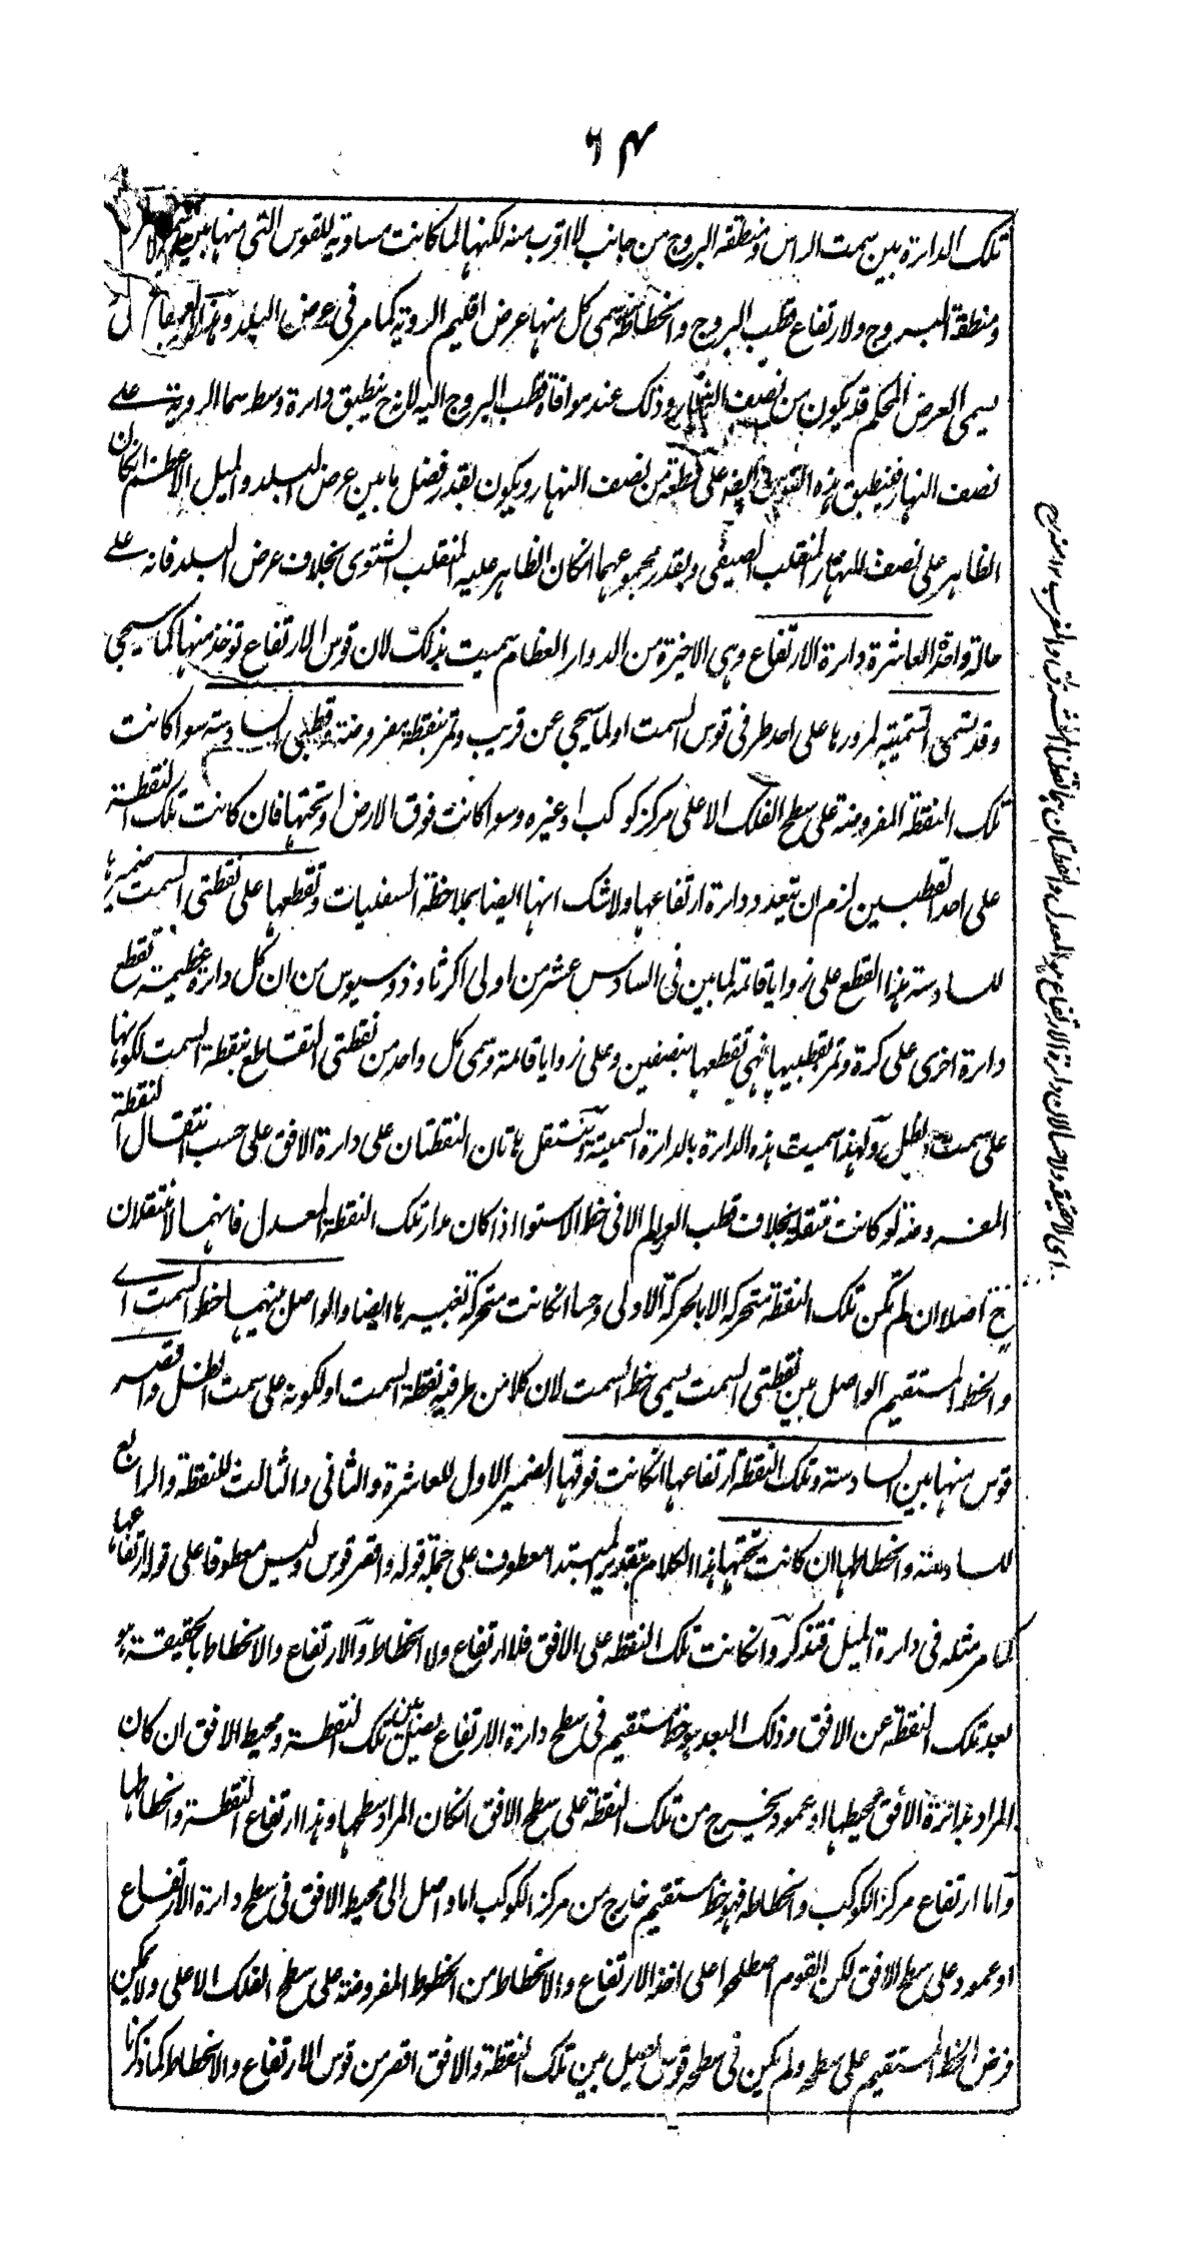 ۶۴
تلك الدائرة بين سمت الراس ومنطقة البروج من جانب لا اقرب منه لكنها لما كانت مساوية للقوس التى منها بين
ومنطقة البروج ولارتفاع قطب البروج وانحطاطه سمى كل منها عرض اقليم الروية كما مر فى عرض البلد وهذا
يسمى العرض المحكم قد يكون من نصف النهار وذلك عند موافاة قطب البروج اليه لان ح ينطبق دائرة وسط سما الروية على
نصف النهار فينطبق هذه القوس ايضا على قطعة من نصف النهار ويكون بقدر فضل ما بين عرض البلد والميل الاعظم انكان
الظاهر على نصف النهار المنقلب الصيفى وبقدر مجموعهما انكان الظاهر عليه المنقلب الشتوى بخلاف عرض البلد فانه على
حالة واحدة العاشرة دائرة الارتفاع وهى الاخيرة من الدوائر العظام سميت بذلك لان قوس الارتفاع توخذ منها كما سيجى
وقد تسمى السمتية لمرورها على احد طرفى قوس السمت او لما سيجى عن قريب وتمر بنقطة مفروضة وقطبى السادسة سوا كانت
تلك النقطة المفروضة على سطح الفلك الاعلى مركز كوكب او غيره وسوا كانت فوق الارض او تحتها فان كانت تلك النقطة
على احد القطبين لزم ان يتعدد دائرة ارتفاعها ولا شك انها ايضا بملاحظة السفليات وتقطعها على نقطتى السمت ضميرها
للسادسة هذا القطع على زوايا قائمة لما بين فى السادس عشر من اولى اكر ثاوذوسيوس من ان كل دائرة عظيمة تقطع
دائرة اخرى على كرة وتمر بقطبيها فهى تقطعها بنصفين وعلى زوايا قائمة وسمى كل واحد من نقطتى التقاطع بنقطة السمت لكونها
على سمت الظل ولهذا سميت هذه الدائرة بالدائرة السمتية وتنتقل هاتان النقطتان على دائرة الافق على حسب انتقال النقطة
المفروضة لو كانت منتقلة بخلاف قطب العالم الا فى خط الاستوا اذا كان مدار تلك النقطة المعدل فانهما لا ينتقلان
ح اصلا ان لم تكن تلك النقطة متحركة الا بالحركة الاولى وحا انكانت متحركة بغيرها ايضا والواصل بينهما خط السمت اى
والخط المستقيم الواصل بين نقطتى السمت يسمى خط السمت لان كلا من طرفيه نقطة السمت او لكونه على سمت الظل واقصر
قوس منها بين السادسة وتلك النقطة ارتفاعها انكانت فوقها الضمير الاول للعاشرة والثانى والثالث للنقطة والرابع
للسادسة وانحطاطها ان كانت تحتها هذا الكلام بتقدير المبتدا معطوف على جملة قوله واقصر قوس وليس معطوفا على قوله ارتفاعها
كما مر مثله فى دائرة الميل فتذكر وانكانت تلك النقطة على الافق فلا ارتفاع ولا انحطاط والارتفاع والانحطاط بالحقيقة هو
بعد تلك النقطة عن الافق وذلك البعد هو خط مستقيم فى سطح دائرة الارتفاع يصل بين تلك النقطة ومحيط الافق ان كان
المراد بدائرة الافق محيطها او عمود يخرج من تلك النقطة على سطح الافق انكان المراد سطحها وهذا ارتفاع النقطة وانحطاطها
واما ارتفاع مركز الكوكب وانحطاطه فهو خط مستقيم خارج من مركز الكوكب اما واصل الى محيط الافق فى سطح دائرة الارتفاع
او عمود على سطح الافق لكن القوم اصطلحوا على اخذ الارتفاع والانحطاط من الخطوط المفروضة على سطح الفلك الاعلى ولا يمكن
فرض الخط المستقيم على سطحه ولم يكن فى سطحه قوس يصل بين تلك النقطة والافق اقصر من قوس الارتفاع والانحطاط كما ذكرنا